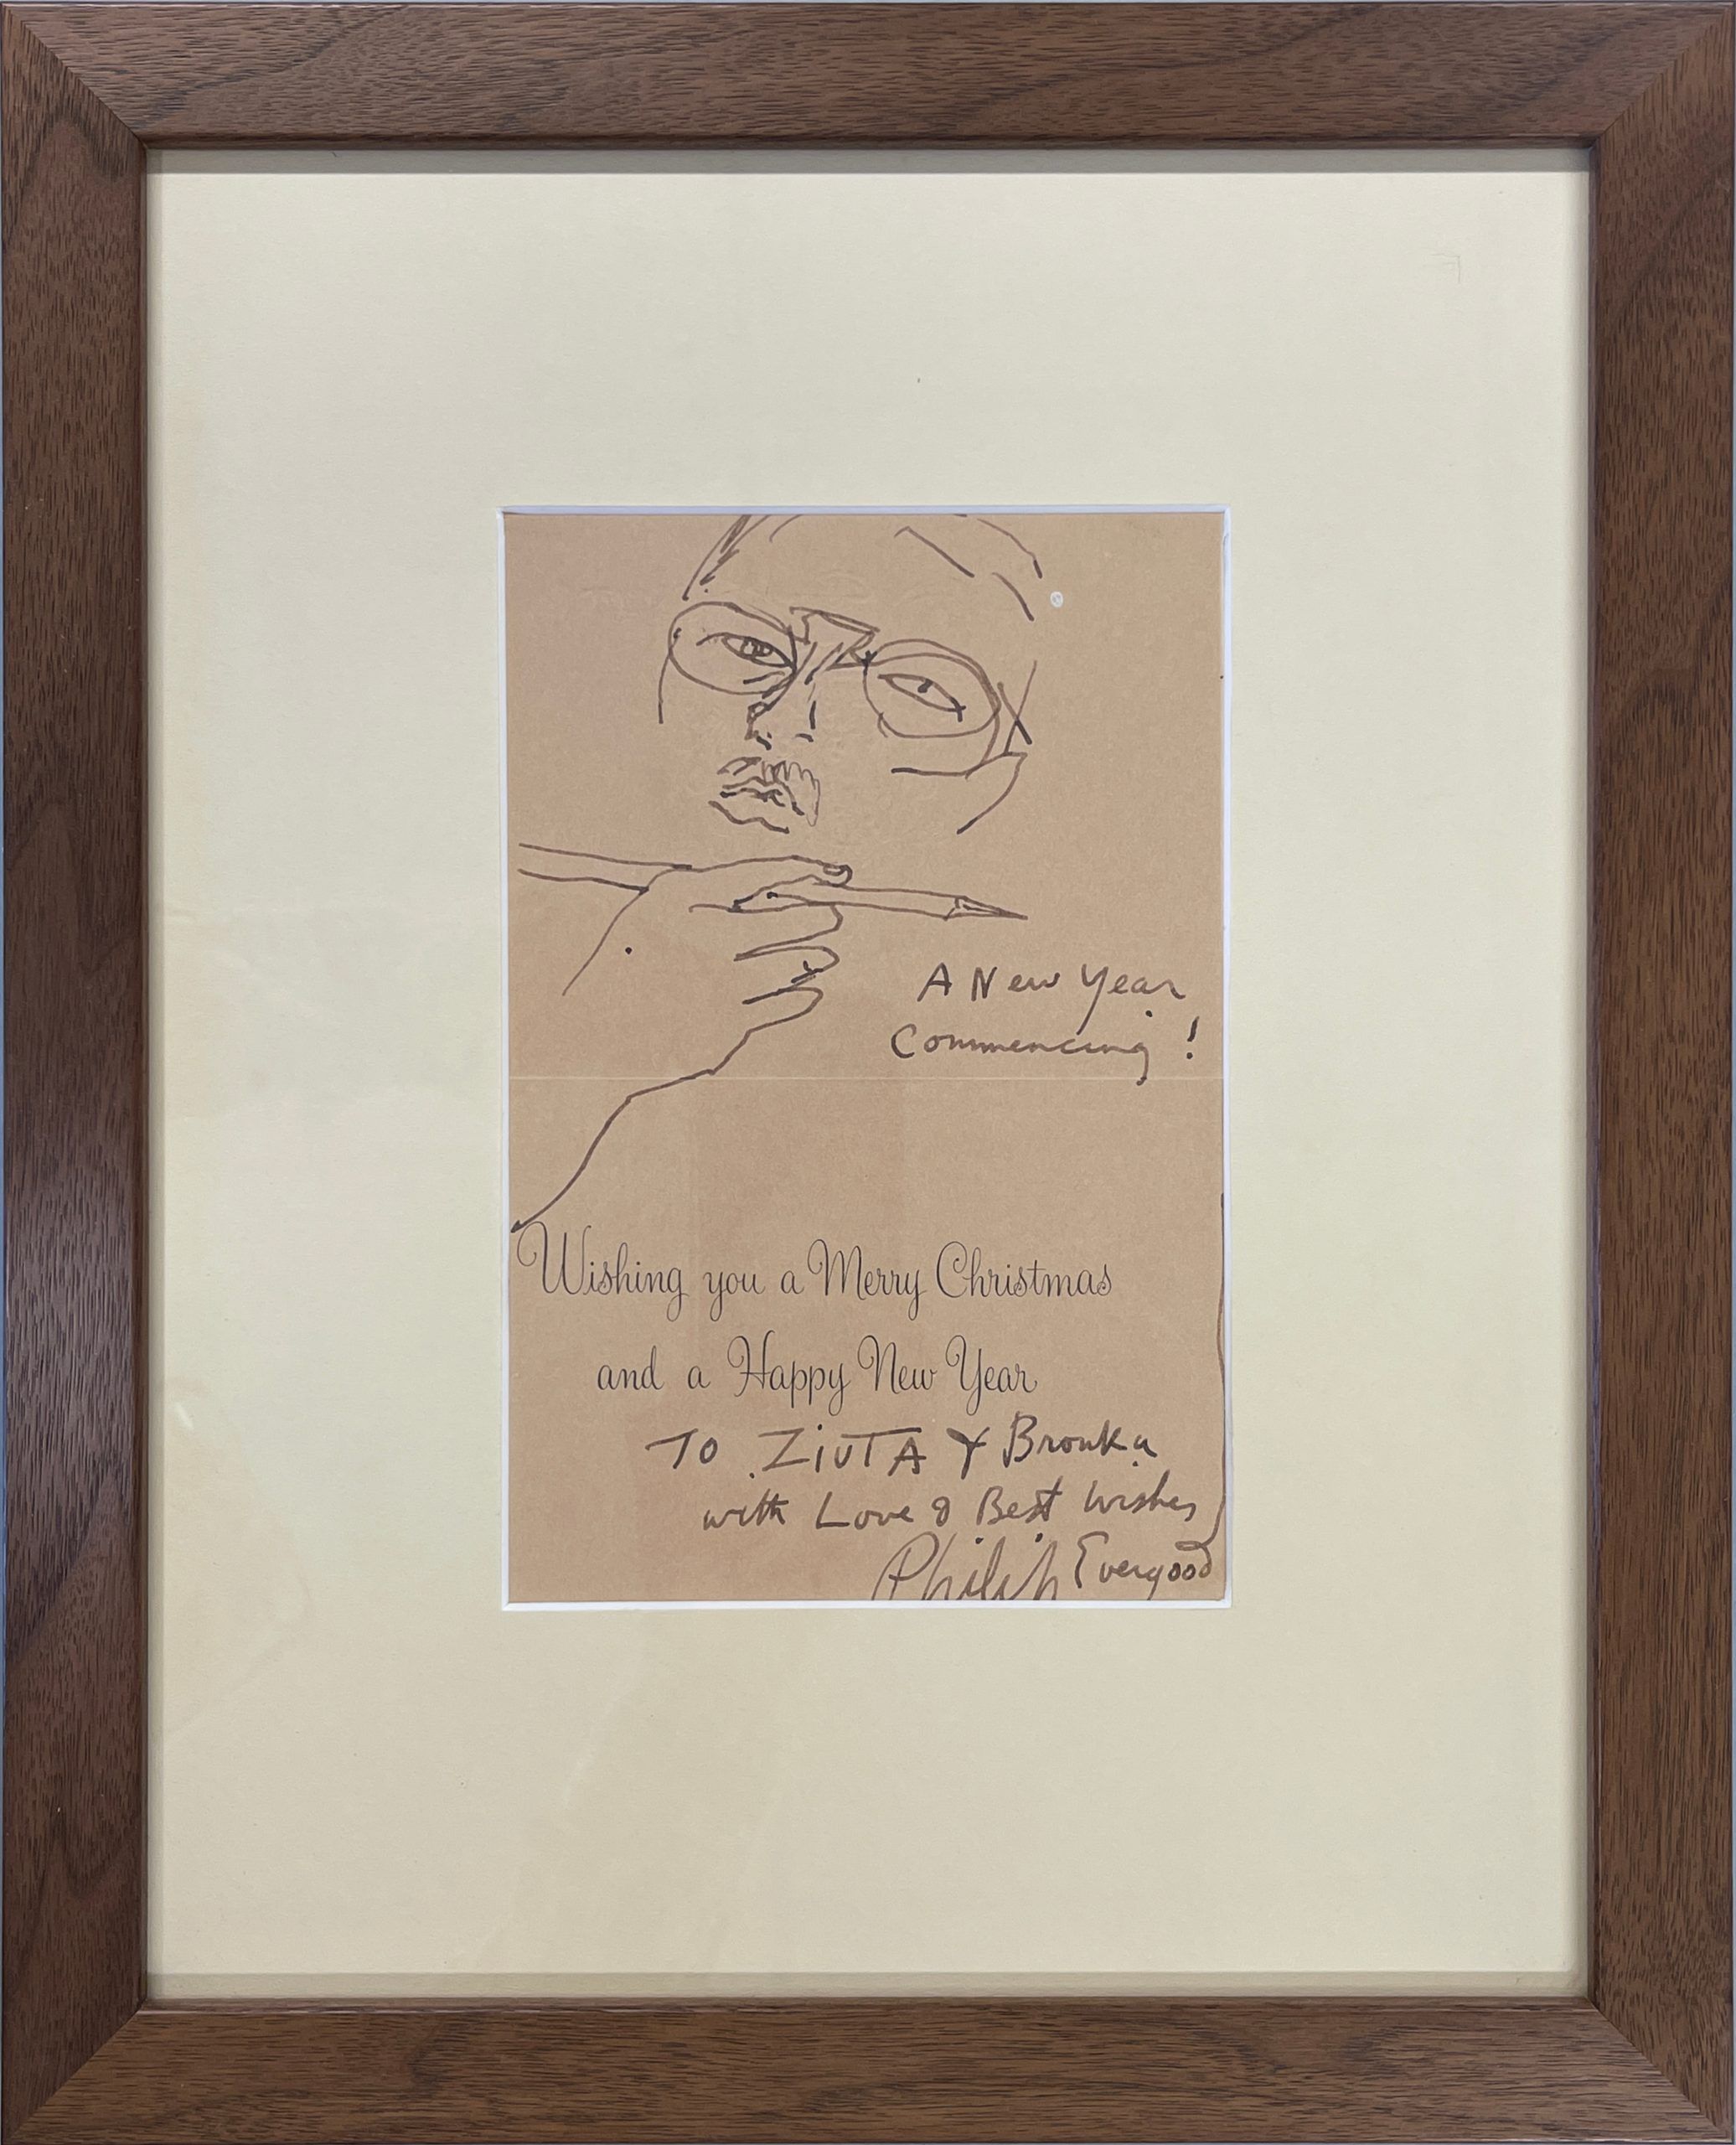 A New Year
Commencing!
Wishing you a Merry Christmas
and a Happy New Year
To ZiUTA & Bronka
with Love & Best Wishes
Philip Evergood